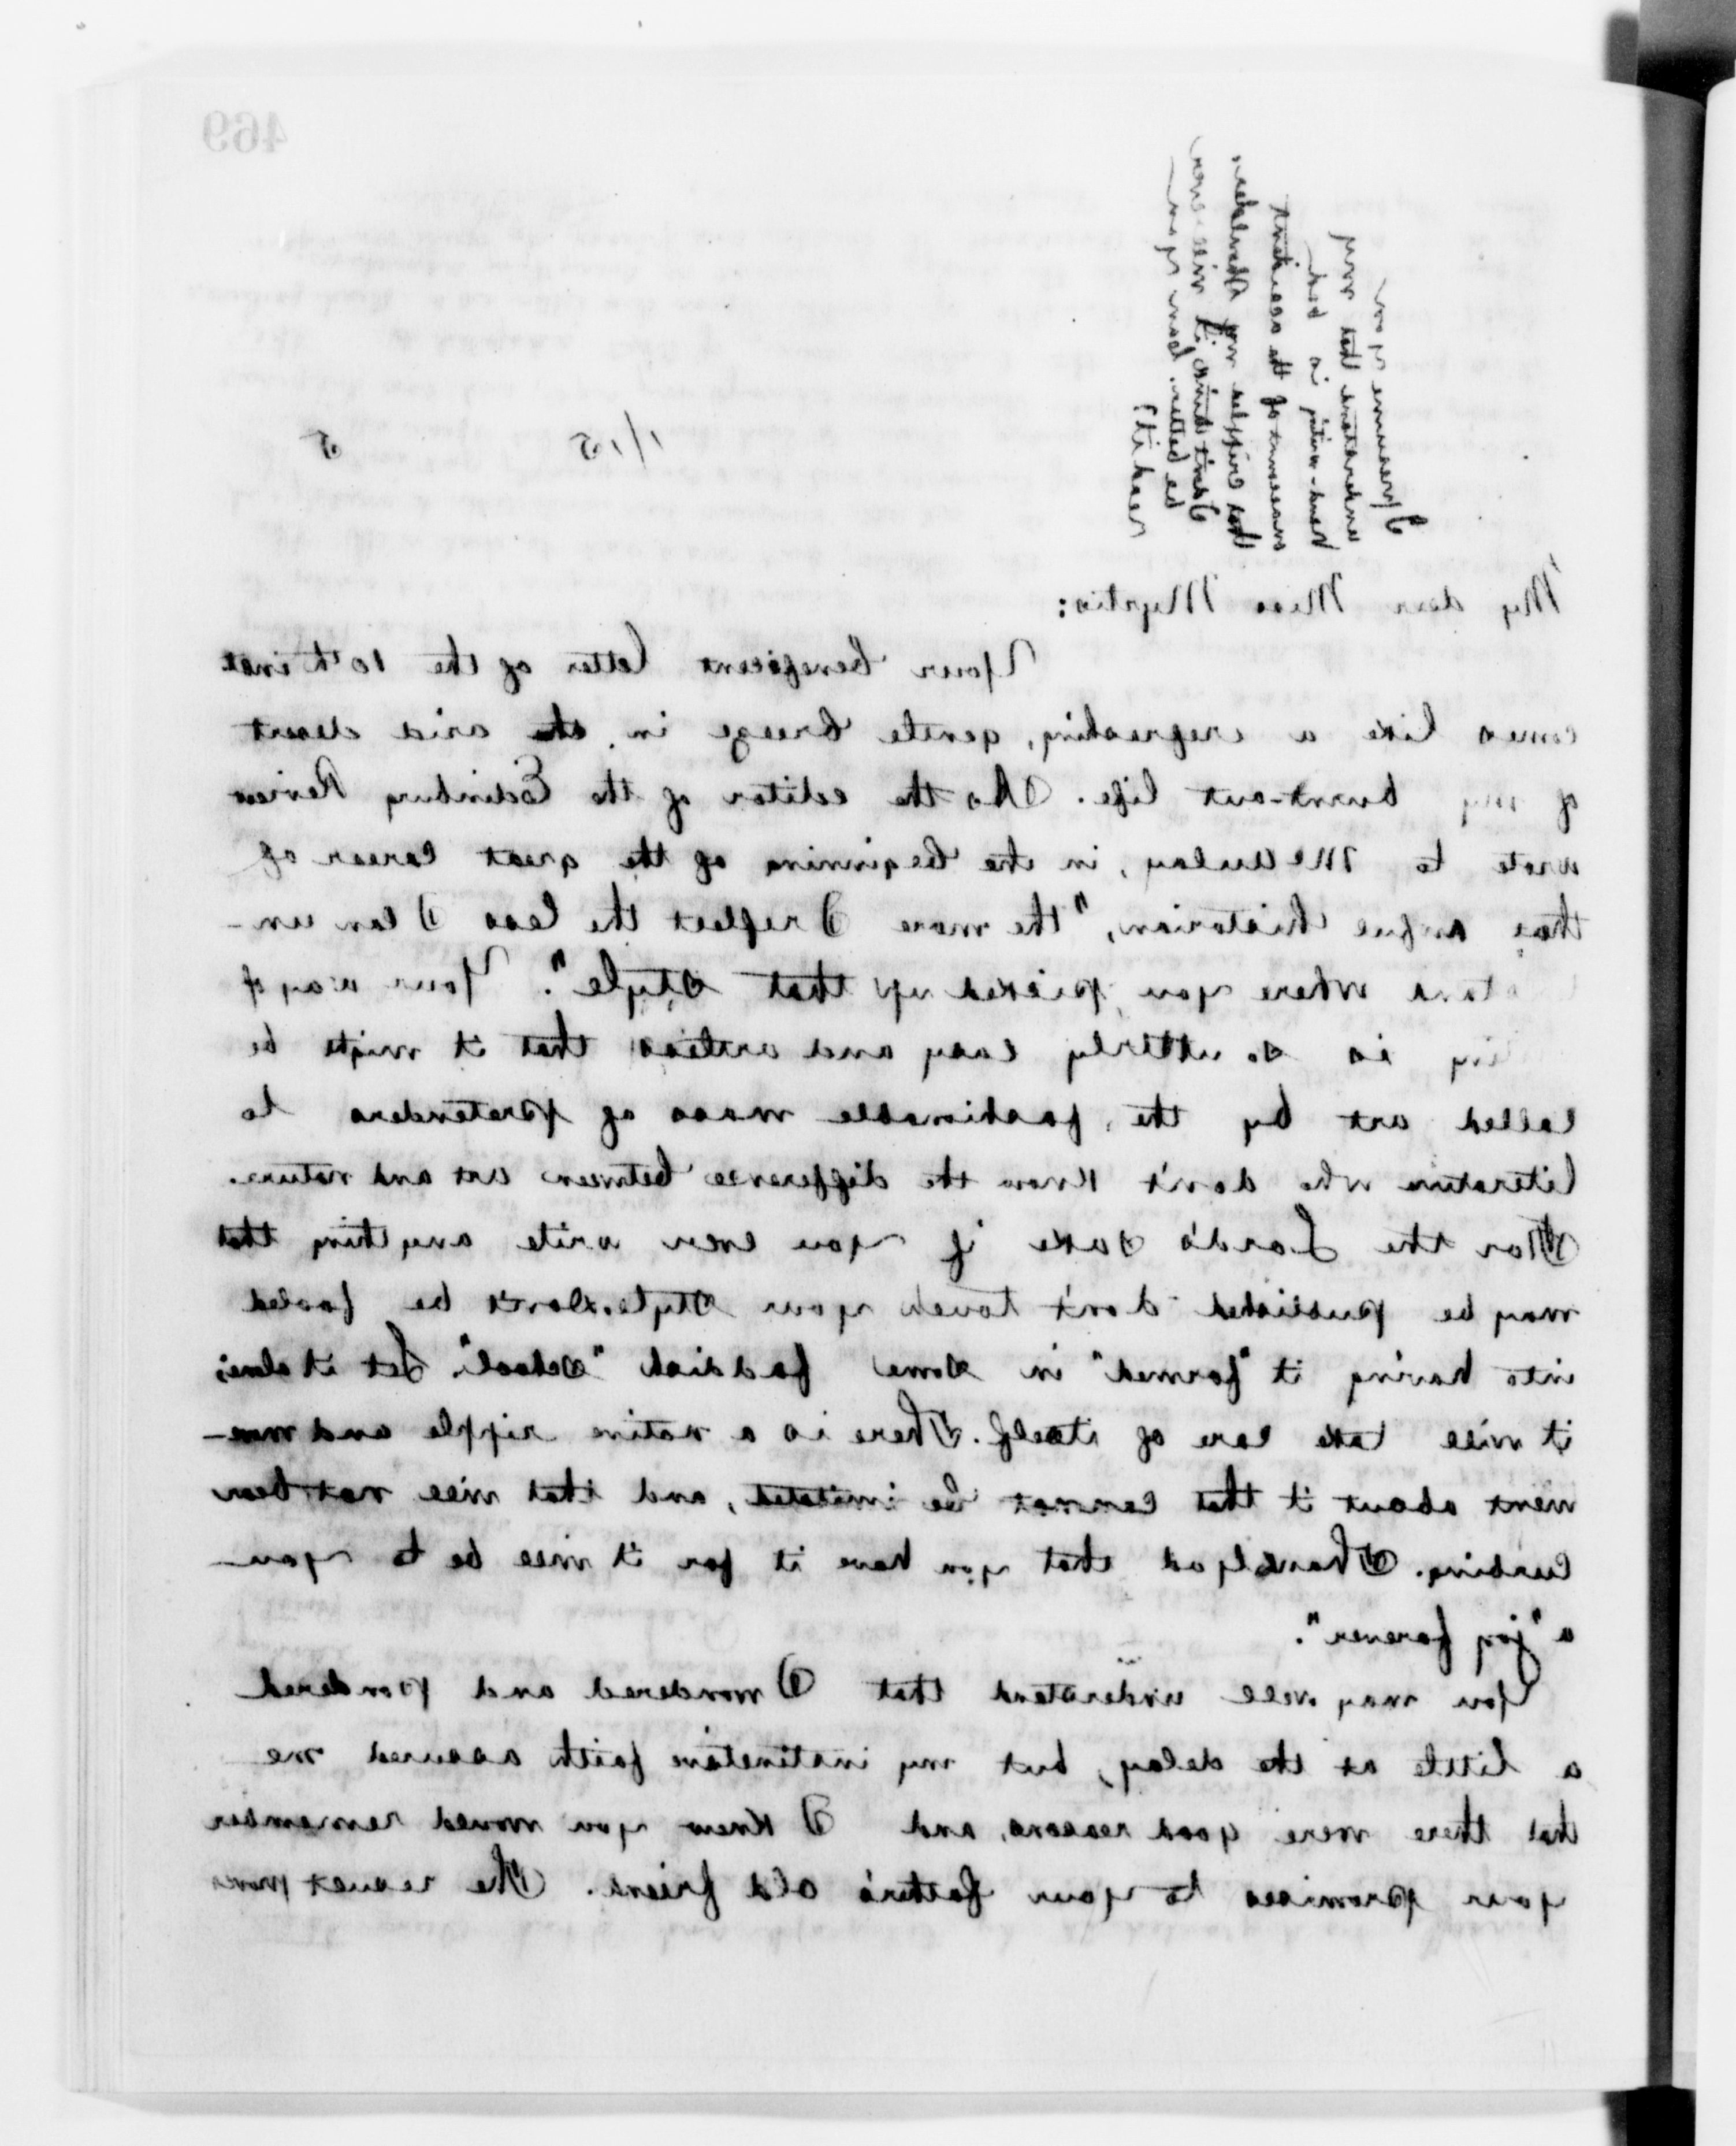 469
I presume you
understand that my
hand-writing is bad
on account of the accident
that crippled my shoulder.
I don't think it will ever
be better. Can you
read it?
1/15 5
My dear Miss Myrtis:
Your beneficent letter of the 10th inst
comes like a refreshing, gentle breeze in the arid desert
of my burnt-out life. As the editor of the Edinburg Review
wrote to McAulay, in the beginning of the great career of
that historian, "the more I reflect the less I can un-
where you picked up that style". Your way of
is so utterly easy and artless that it might be
called art by the fashionable mass of pretenders to
literature who don't know the difference between art and nature.
For the Lord's sake if you ever write anything that
may be published don't touch your style. Don't be fooled
into having it "formed" in some faddish "school". Let it alone;
it will take care of itself. There is a native ripple and move-
ment about it that cannot be imitated, and that will not bear
curbing. Thank God that you have it for it will be to you
a "joy forever".
You may well understand that I wondered and pondered
a little at the delay, but my instinctive faith assured me
that there were good reasons, and I knew you would remember
your promises to your father's old friend. The recent